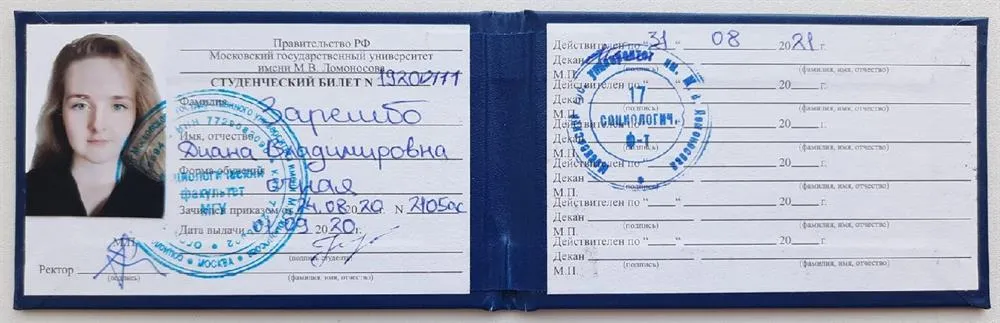 Правительство РФ
Московский государственный университет
имени М.В. Ломоносова
СТУДЕНЧЕСКИЙ БИЛЕТ N
Фамилия Зарембо
Имя, отчество
Диана Владимировна
Форма обучения
очная
Зачислен приказом от 24.08 2020 N
Дата выдачи 01.09 2020 г.
М.П. (подпись студента)
Ректор
(подпись) (фамилия, имя, отчество)
социологический
факультет
МГУ
МОСКВА
Действителен по "31" 08 2021 г.
Декан
М.П. (фамилия, имя, отчество)
Действителен по 20 г.
Декан
М.П. (подпись) (фамилия, имя, отчество)
Действителен по 20 г.
Декан
М.П. (фамилия, имя, отчество)
Действителен по 20 г.
Декан
М.П. (подпись) (фамилия, имя, отчество)
Действителен по "__" 20 г.
Декан
М.П. (подпись) (фамилия, имя, отчество)
Действителен по "__" 20 г.
Декан
М.П. (подпись) (фамилия, имя, отчество)
17
СОЦИОЛОГИЧ.
Ф-Т